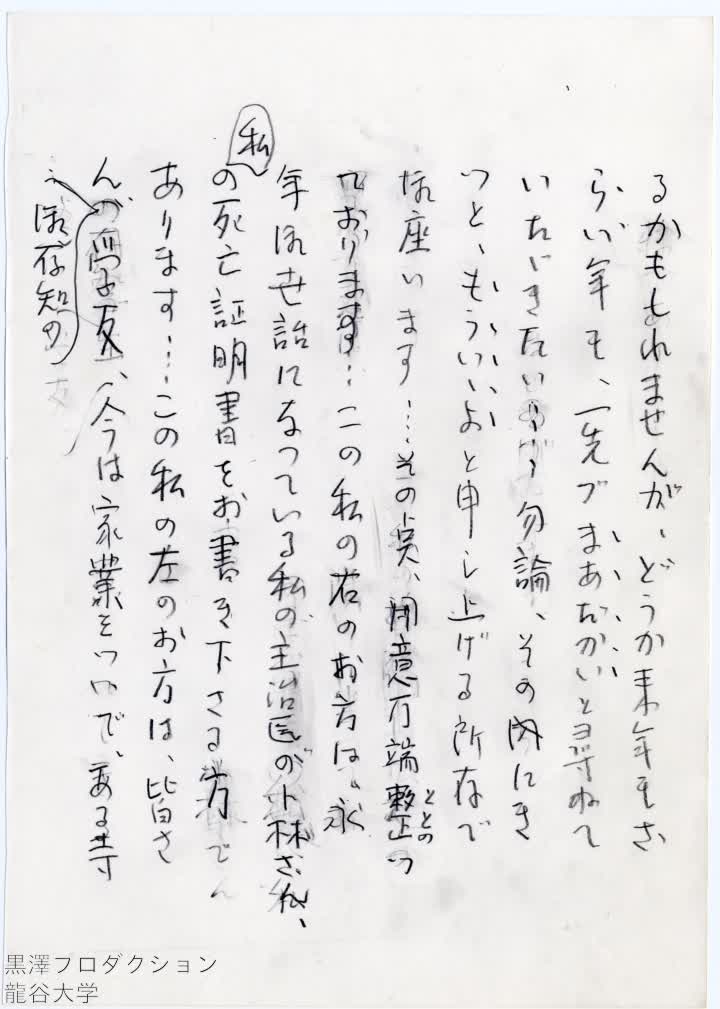 るかもしれませんが、どうか来年もさ
らい年も、一先づまあだかいと尋ねて
いただきたい…勿論、その内にき
っと、もういいよと申し上げる所存で
御座います…その点、用意万端整っ
ととの
ております…この私の右のお方は、永
年御世話になっている私の主治医の小林さん、
私
の死亡証明書をお書き下さる方で
あります…この私の左のお方は、皆さ
んが
御存知の
友、今は家業をついで、ある寺
黒澤プロダクション
龍谷大学